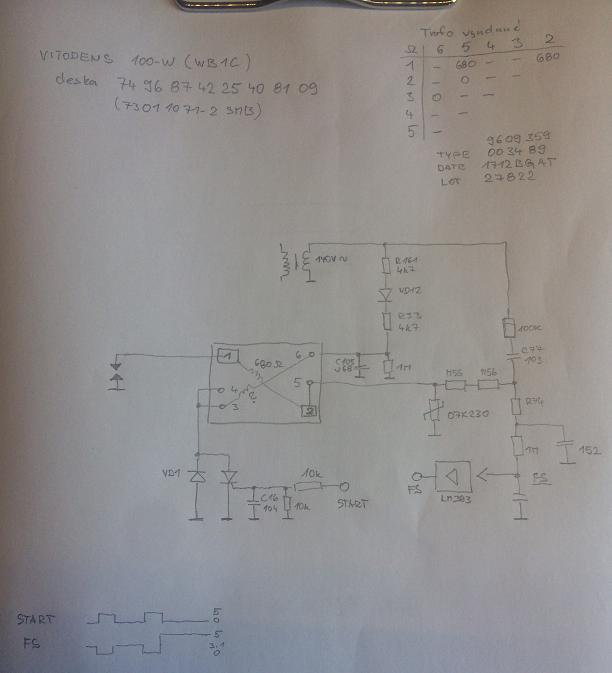 VITODENS 100-W (WB1C)
deska 74 96 87 42 25 40 81 09
(7301 1071-2 SMB)
Trafo vyndané
Ω 6 5 4 3 2
1 - 680 - - 680
2 - 0 - -
3 0 - -
4 - -
5 -
9609 359
TYPE 0034 89
DATE 1712BGAT
LOT 27822
140V~
R161
4k7
VD12
R33
4k7
100k
C77
103
1
680Ω
6
C105
1M
5
4
3
2
M56
M56
R74
07K230
1M
152
VD1
10k
C16
104
10k
START
FS
LM393
FS
START
5
0
FS
5
3,1
0